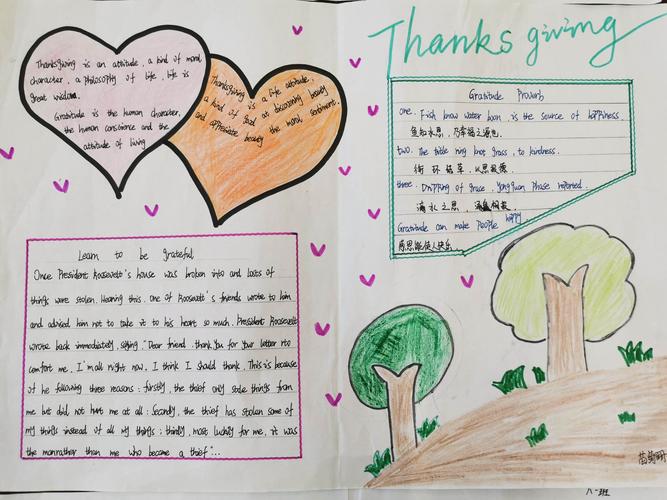 Thanksgiving
Thanksgiving is an attitude, a kind of moral
character, a philosophy of life, life is
great wisdom.
Gratitude is the human character,
the human conscience and the
attitude of living
Thanksgiving is a life attitude,
a kind of good at discovering beauty
and appreciate beauty the moral sentiment.
Gratitude Proverb
one. Fish know water born, is the source of happiness.
鱼知水恩，乃幸福之源也.
two. The title ring knot grass, to kindness.
衔环结草，以恩报德.
three. Dripping of grace, Yongquan phase reported.
滴水之恩，涌泉相报
Gratitude can make people happy
感恩能使人快乐
Learn to be grateful
Once President Roosevelt's house was broken into and losts of
things were stolen. Hearing this, one of Roosevelt's friends wrote to him
and advised him not to take it to his heart so much. President Roosevelt
wrote back immediately, saying, "Dear friend, thank you for your letter nto
comfort me. I'm all right now. I think I should thank. This is because
of he following three reasons: firstly, the thief only stole things from
me but did not hurt me at all; Secondly, the thief has stolen some of
my things instead of all my things; thirdly, most luckily for me, it was
the man rather than me who became a thief"...
八一班